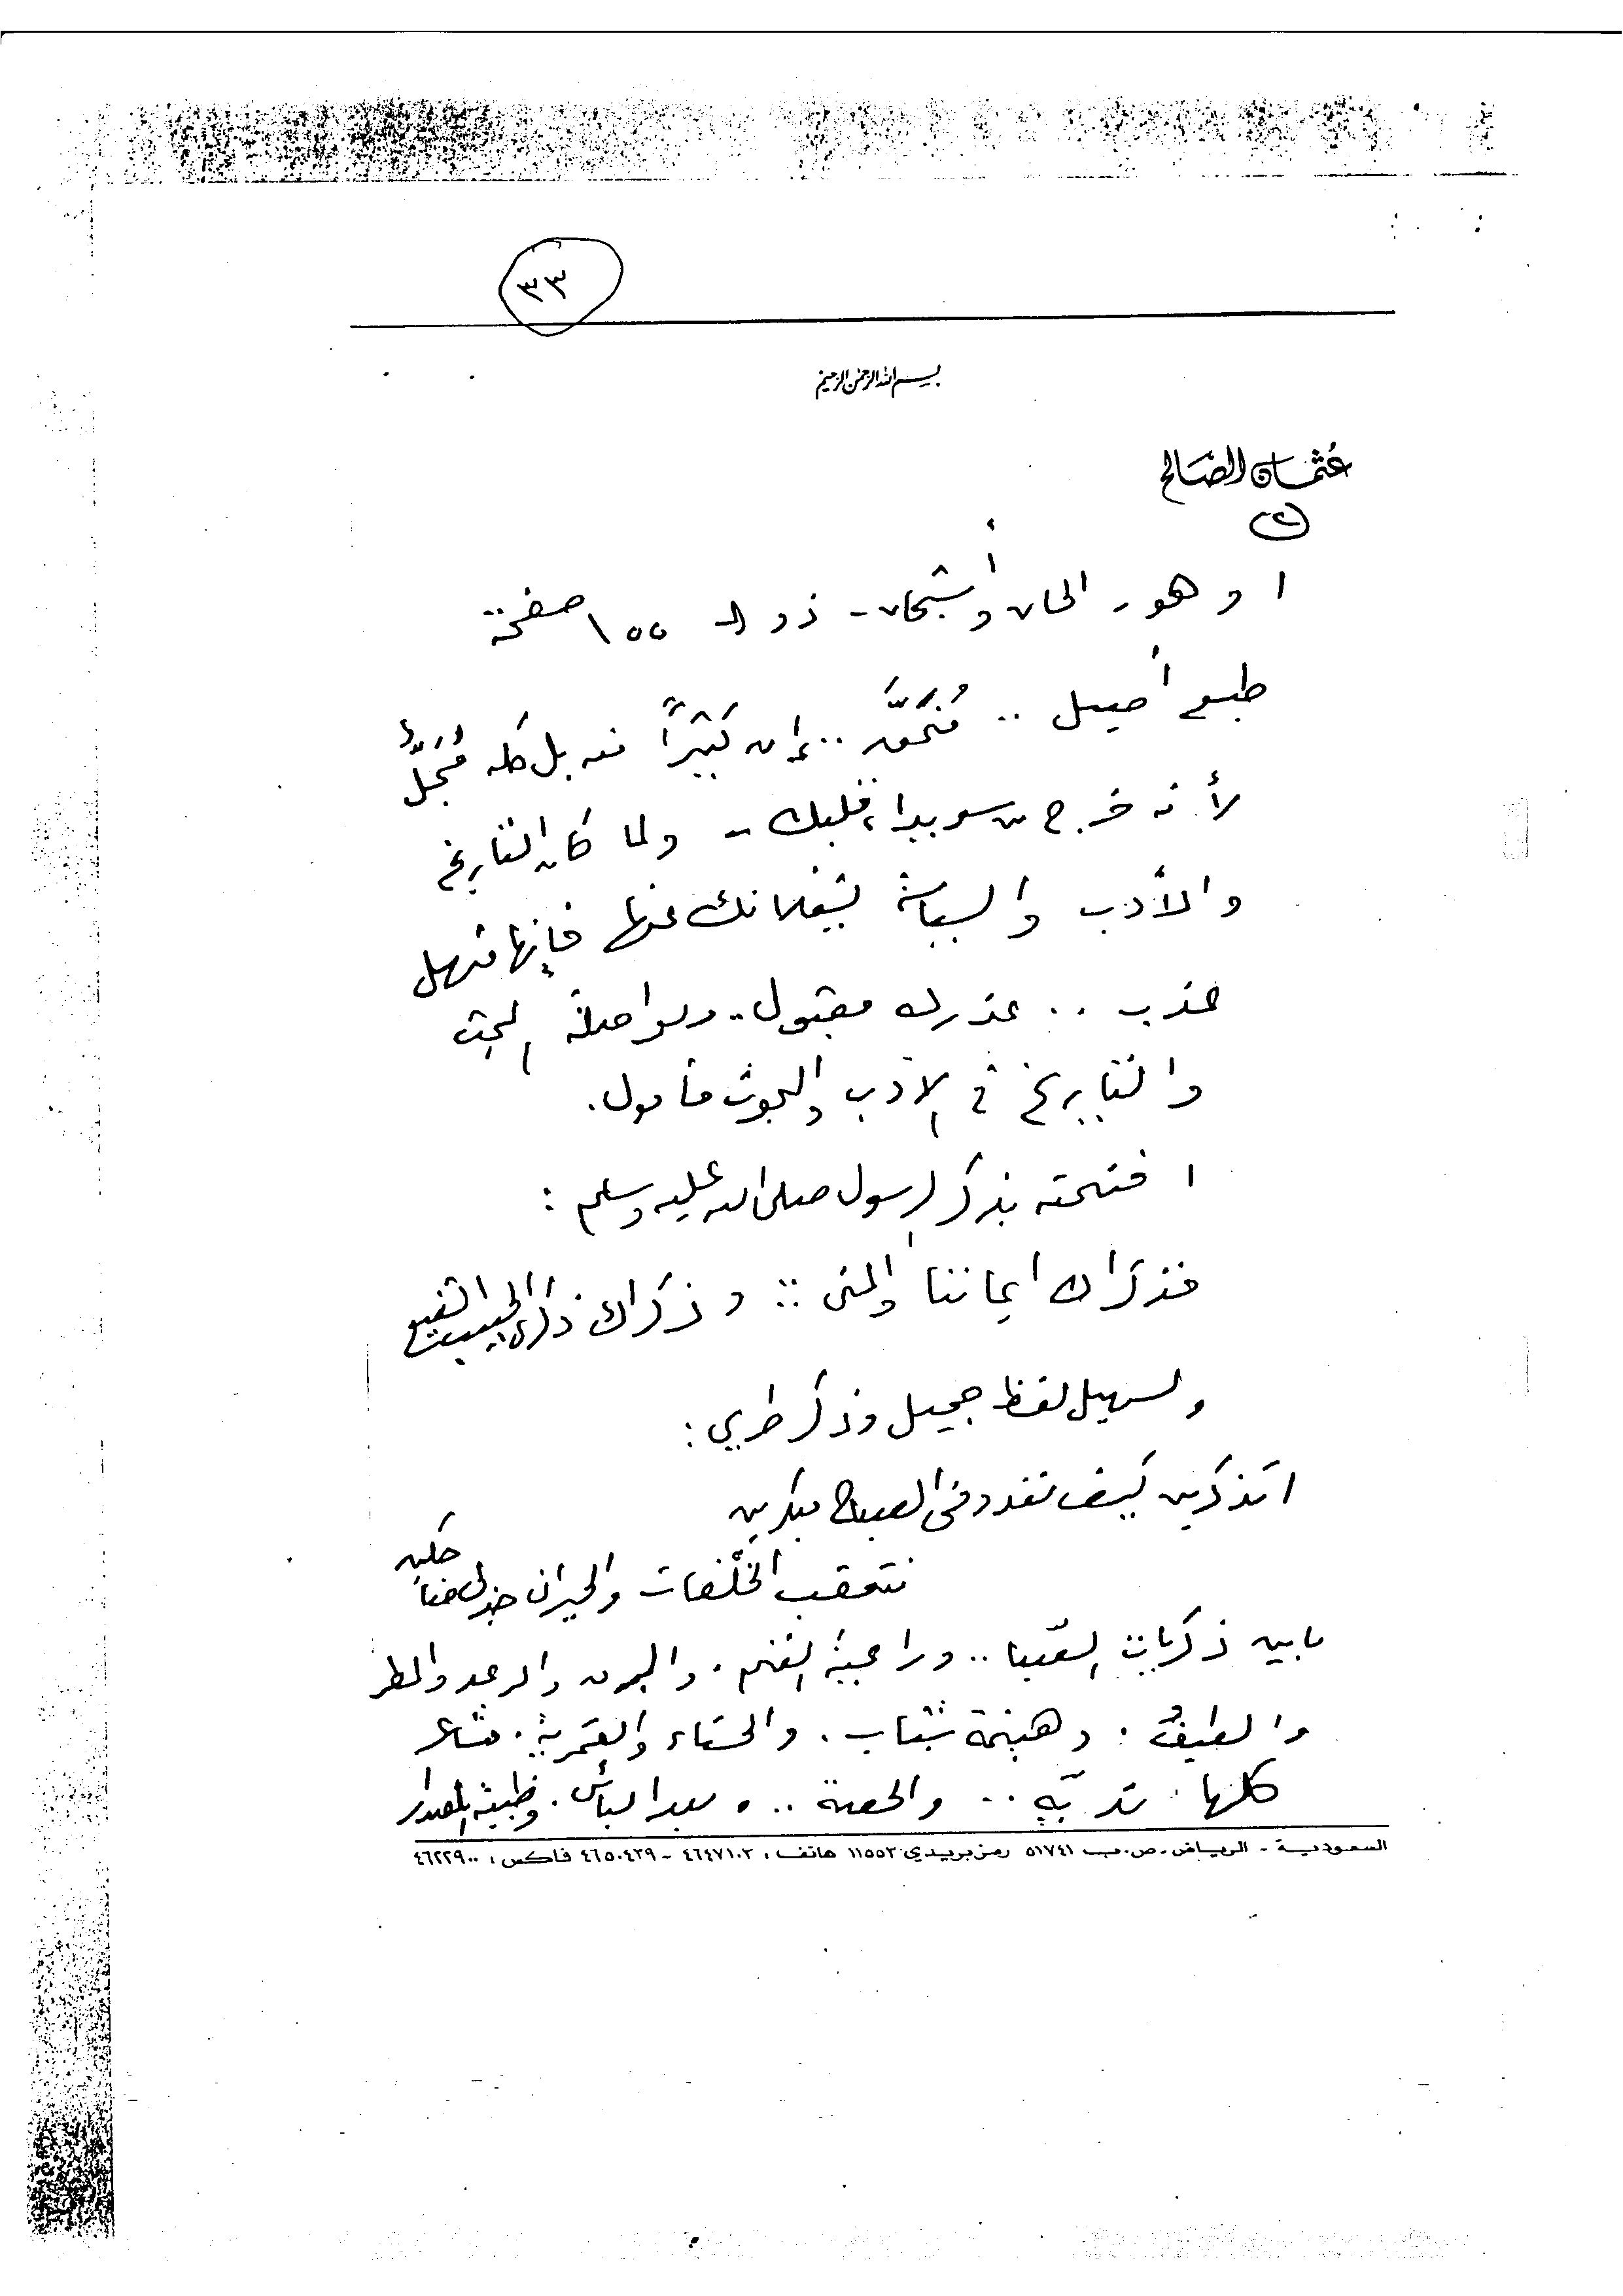 ٣٣
بسم الله الرحمن الرحيم
عثمان الصالح
٢
او هو ـ الحان وأشجان ـ ذو الـ ١٥٥ صفحة
طبع أصيل .. مُنَمَّق .. إن كثيراً منه بل كله مُجَلٌّ
لأنه خرج من سويداء قلبك ـ ولما كان التاريخ
والأدب والسياسة يشغلانك عنها فإنها منهل
عذب .. عذرك مقبول .. ومواصلة البحث
والتاريخ في الادب والبحوث مأمول.
افتتحته بذكر الرسول صلى الله عليه وسلم :
فذكراك ايماننا والمنى :: وذكراك ذكرى الحبيب الشفيع
ولسهيل لفظ جميل وذكر طري :
اتذكرين كيف نغدو في الصباح مبكرين
نتعقب الخلفات والجيران جذلى
مابين ذكريات الصّبا .. وراعية الغنم . والبرق والرعد والمطر
والطيف . وهينمة شباب . والحسناء والقمرية . مشاعر
كلها . .. .. وظبية
السعودية ـ الرياض ـ ص.ب ٥١٧٤١ رمز بريدي ١١٥٥٣ هاتف : ٤٦٤٧١٠٢ ـ ٤٦٥٠٤٣٩ فاكس : ٤٦٢٢٩٠٠